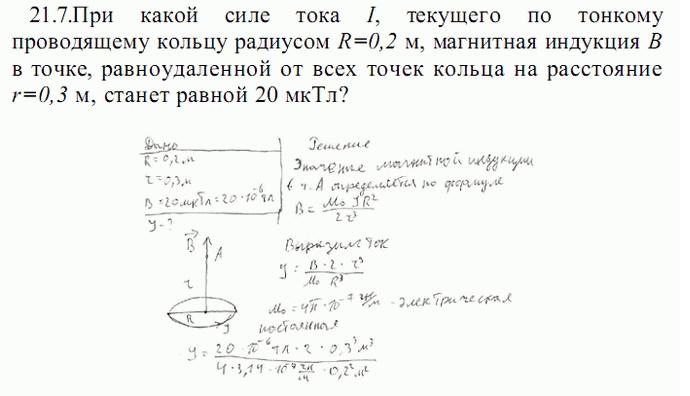 21.7.При какой силе тока I, текущего по тонкому
проводящему кольцу радиусом R=0,2 м, магнитная индукция B
в точке, равноудаленной от всех точек кольца на расстояние
r=0,3 м, станет равной 20 мкТл?
Дано
R = 0,2 м
r = 0,3 м
B = 20 мкТл = 20 · 10⁻⁶ Тл
J - ?
Решение
Значение магнитной индукции
в т. А определяется по формуле
B = M₀ J R² / 2 r³
Выразим ток
J = B · 2 · r³ / M₀ R³
M₀ = 4π · 10⁻⁷ Гн/м - электрическая
постоянная
B
A
r
R
J
J = 20 · 10⁻⁶ Тл · 2 · 0,3³ м³ / 4 · 3,14 · 10⁻⁷ Гн/м · 0,2² м²